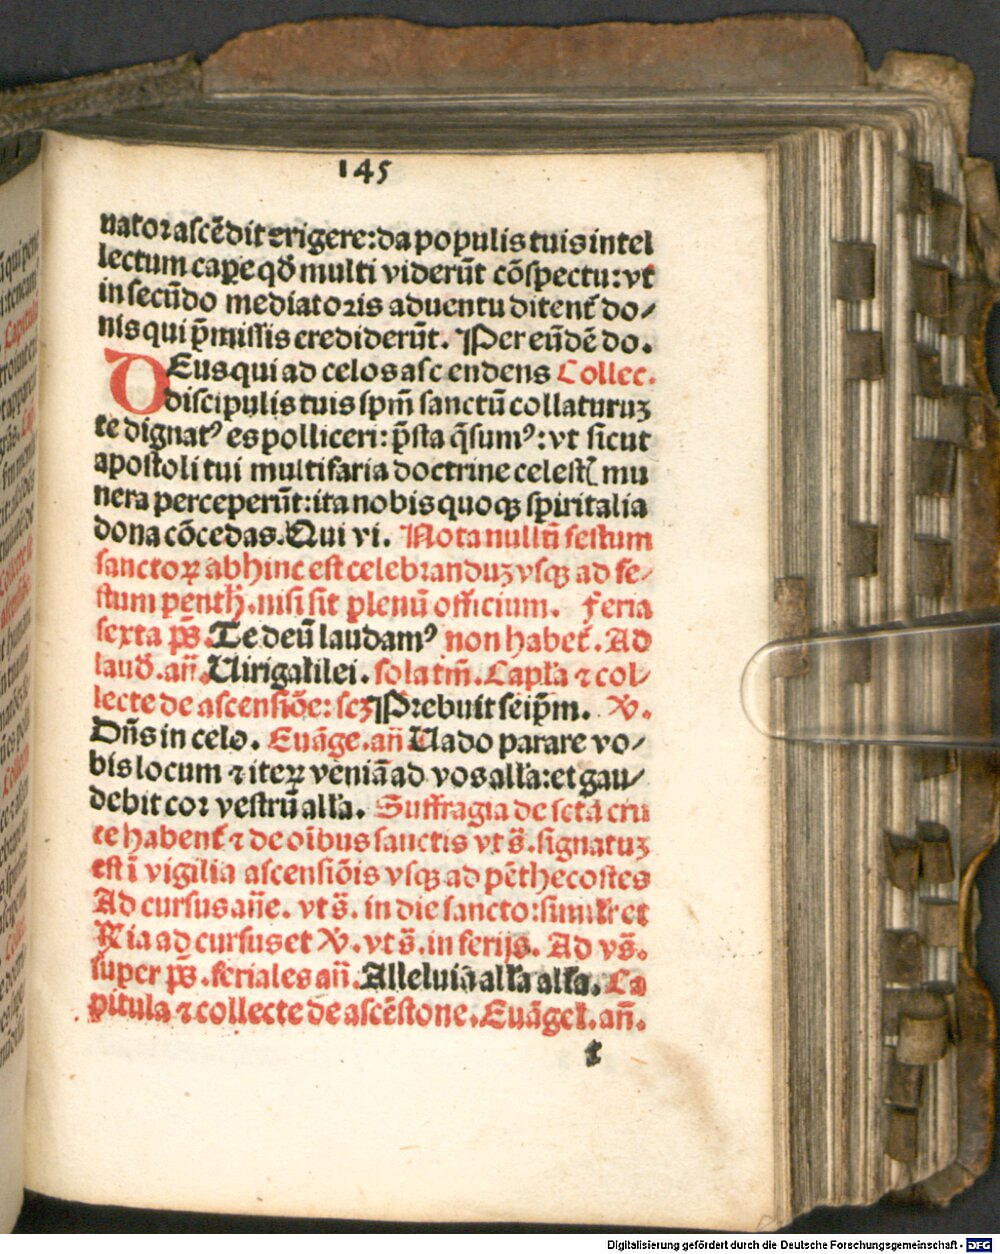 145
natoꝛ ascēdit erigere: da populis tuis intel
lectum cape qd̄ multi viderūt cōspectu: vt
in secūdo mediatoꝛis aduentu ditent᷑ do⸗
nis qui p̄missis crediderūt. Per eūdē do.
DEus qui ad celos ascendens Collec.
discipulis tuis spm̄ sanctū collaturuꝫ
te dignatꝰ es polliceri: p̄sta q̄sumꝰ: vt sicut
apostoli tui multifaria doctrine celestꝭ mu
nera perceperūt: ita nobis quoqꝫ spiritalia
dona cōcedas. Qui vi. Nota nullū festum
sanctoꝝ abhinc est celebꝛanduꝫ vsqꝫ ad fe⸗
stum penth̄. nisi sit plenū officium. Feria
sexta ps̄. Te deū laudamꝰ non habet᷑. Ad
laud̄. an̄. Uiri galilei. sola tm̄. Capl'a ⁊ col⸗
lecte de ascensiōe: scꝫ Prebuit seip̄m. ℣.
Dn̄s in celo. Euāge. an̄ Uado parare vo⸗
bis locum ⁊ iteꝝ veniā ad vos all'a: et gau⸗
debit coꝛ vestrū all'a. Suffragia de sct̄a cru
ce habent᷑ ⁊ de oībus sanctis vt s̄. signatuꝫ
est ī vigilia ascensiōis vsqꝫ ad pēthecostes
Ad cursus an̄e. vt s̄. in die sancto: simil'r et
℟ia ad cursus et ℣. vt s̄. in ferijs. Ad vs̄.
super ps̄. feriales an̄. Alleluia all'a all'a. Ca
pitula ⁊ collecte de ascēsione. Euāgel̄. an̄.
t
Digitalisierung gefördert durch die Deutsche Forschungsgemeinschaft - DFG